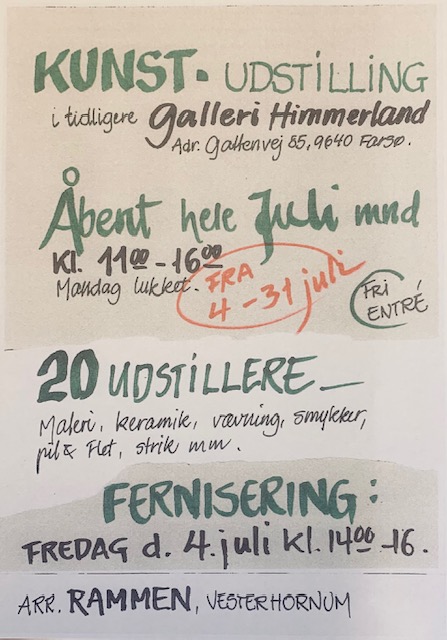 KUNST. UDSTILLING
i tidligere Galleri Himmerland
Adr. Gattenvej 85, 9640 Farsø.
Åbent hele Juli mnd
Kl. 11⁰⁰ - 16⁰⁰
Mandag lukket.
FRA
4 - 31 juli
FRI
ENTRÉ
20 UDSTILLERE_
Maleri, keramik, vævning, smykker,
pil & Flet, strik mm.
FERNISERING:
FREDAG d. 4. juli kl. 14⁰⁰ - 16.
ARR. RAMMEN, VESTERHORNUM